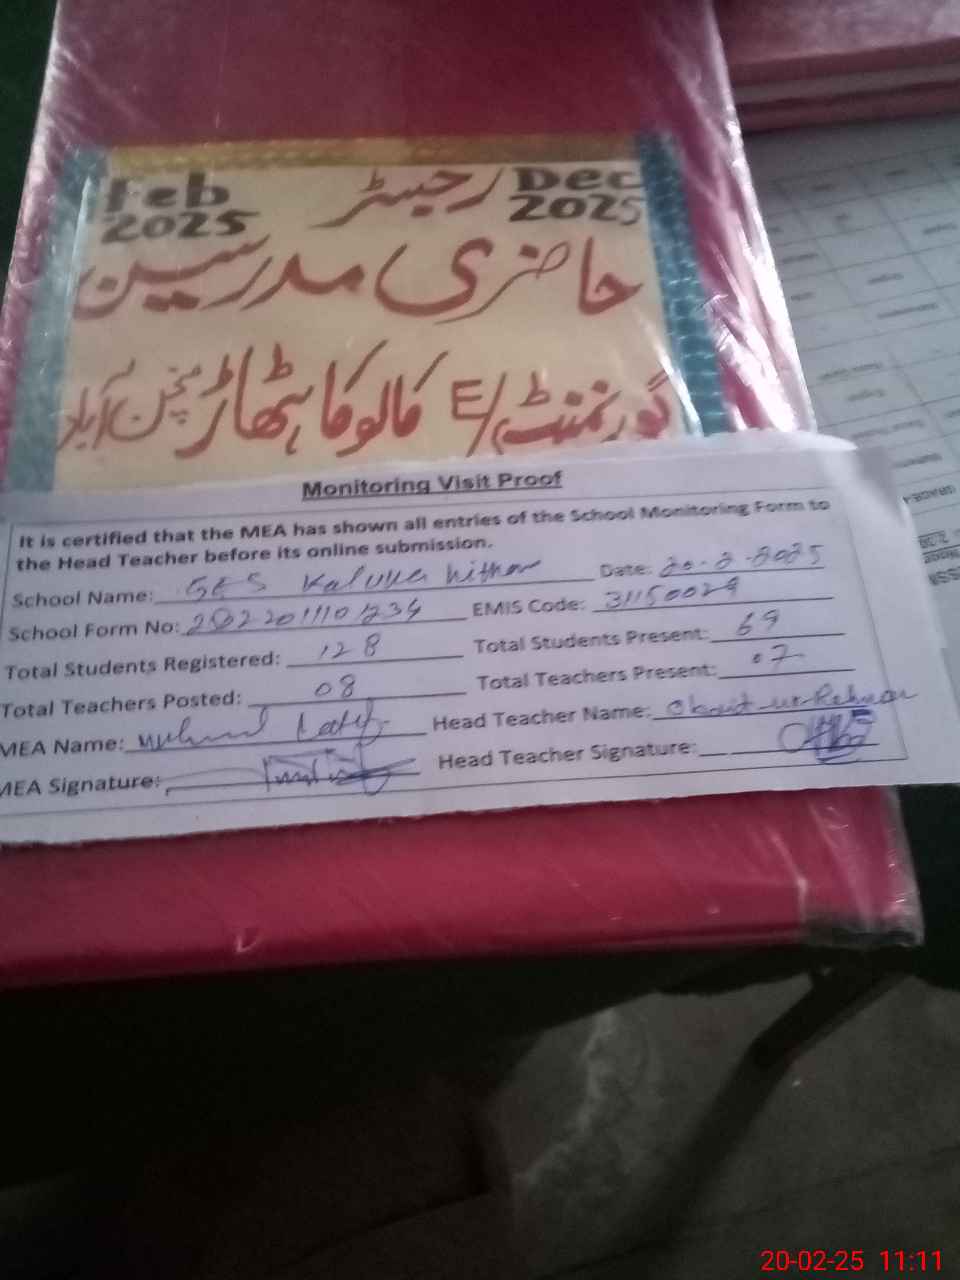 Feb رجسٹر Dec
2025 2025
حاضری مدرسین
گورنمنٹ/E کالوکا ہٹھاڑ منچن آباد
Monitoring Visit Proof
It is certified that the MEA has shown all entries of the School Monitoring Form to
the Head Teacher before its online submission.
School Name: GES Kaluka hithar Date: 20-2-2025
School Form No: 2022011101234 EMIS Code: 31150029
Total Students Registered: 128 Total Students Present: 69
Total Teachers Posted: 08 Total Teachers Present: 07
MEA Name: Head Teacher Name: Obaid-ur-Rehman
MEA Signature: Head Teacher Signature:
20-02-25 11:11